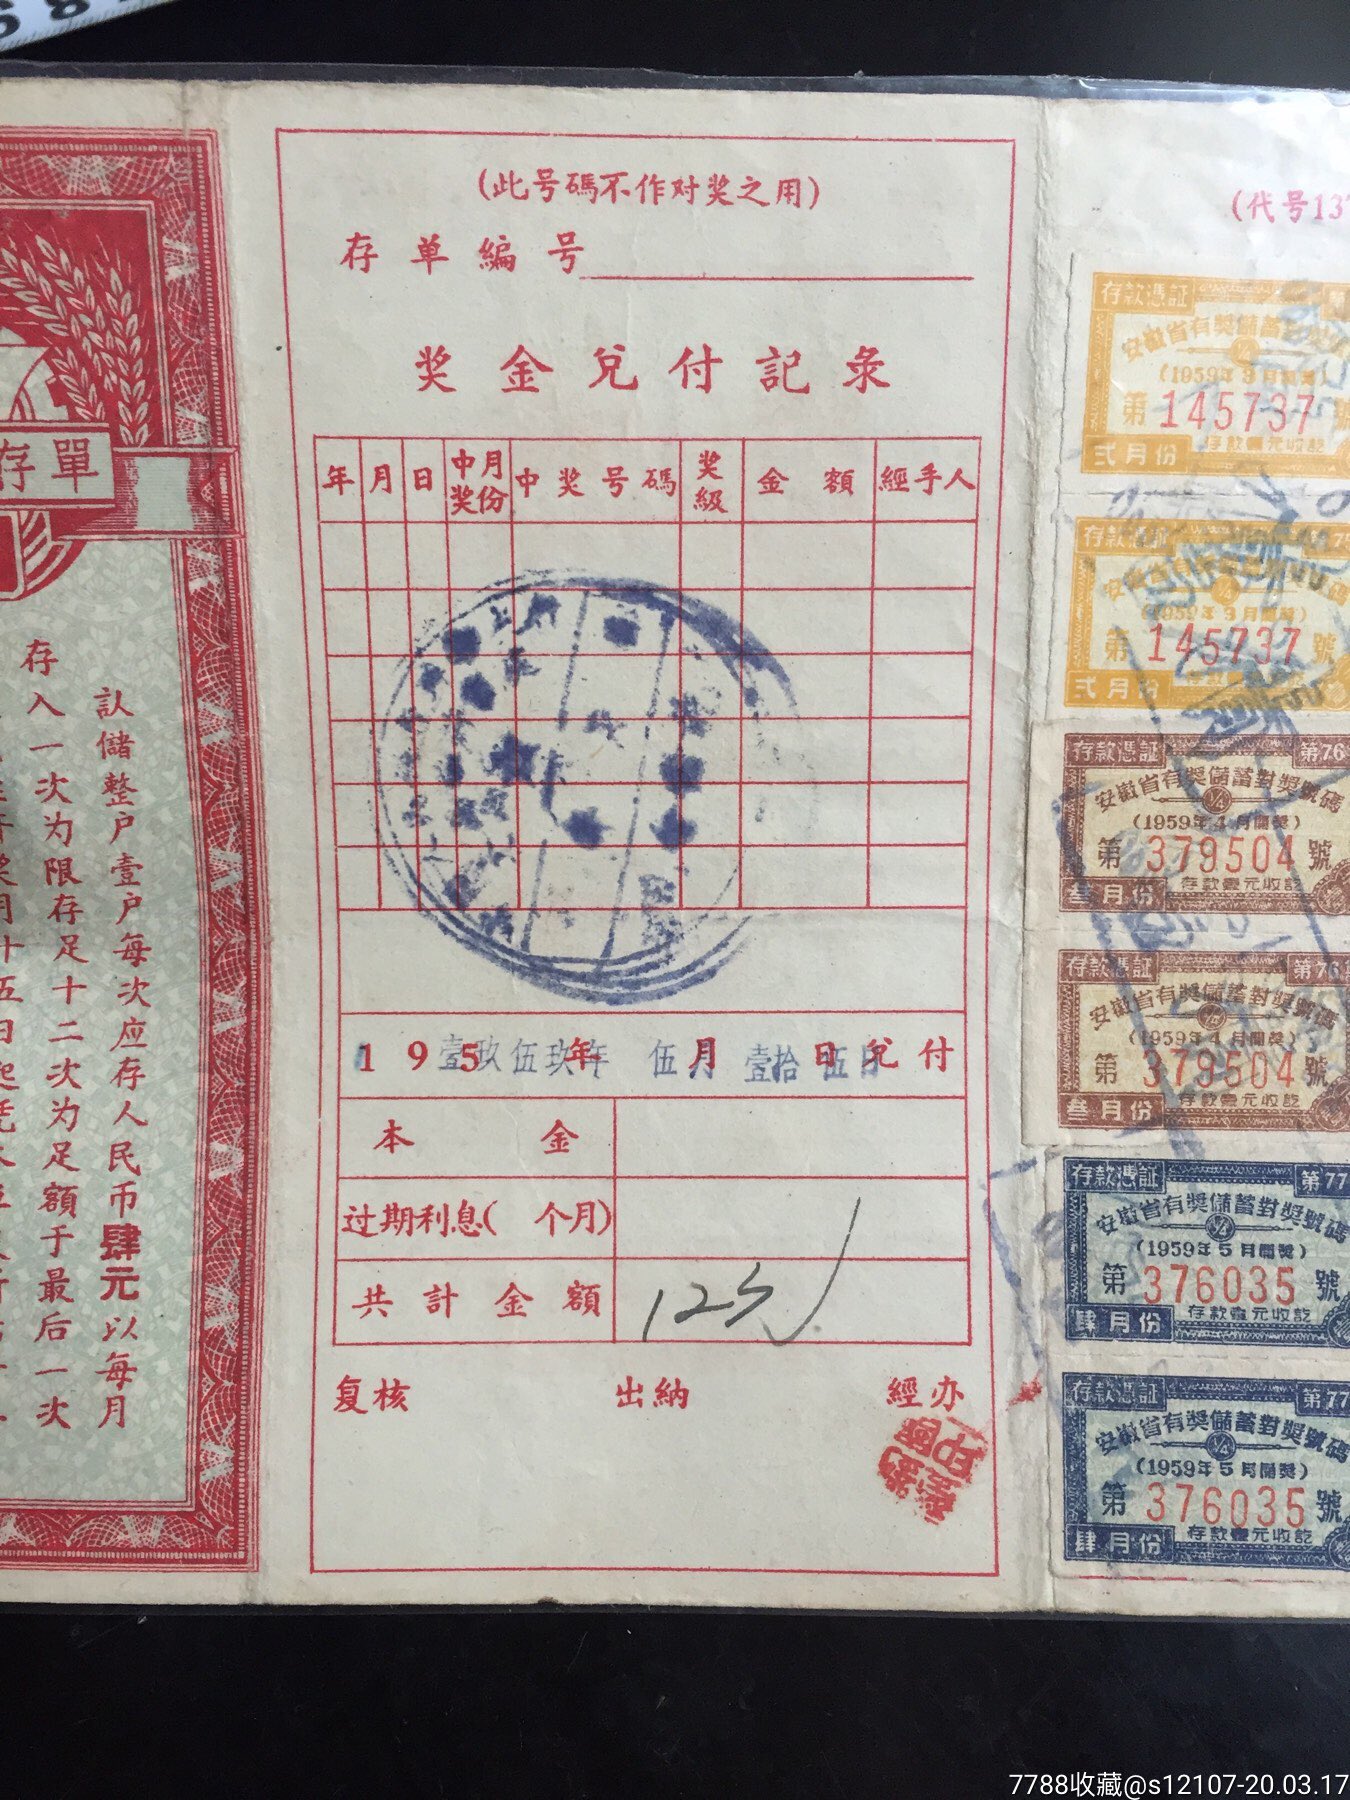 存單
認儲整户壹户每次应存人民币肆元以每月
存入一次为限存足十二次为足額于最后一次
(此号碼不作对奖之用)
存单編号
奖金兌付記录
年 月 日 中奖月份 中奖号碼 奖級 金額 經手人
195 年 月 日兌付
壹玖伍玖年 伍月 壹拾伍日
本金
过期利息( 个月)
共計金額 12元
复核 出納 經办
(代号137
存款憑証
安徽省有獎儲蓄對獎號碼
(1959年3月開獎)
第145737號
存款壹元收訖
弍月份
存款憑証 第75
安徽省有獎儲蓄對獎號碼
(1959年3月開獎)
第145737號
弍月份
存款憑証 第76
安徽省有獎儲蓄對獎號碼
(1959年4月開獎)
第379504號
存款壹元收訖
叁月份
存款憑証 第76
安徽省有獎儲蓄對獎號碼
(1959年4月開獎)
第379504號
存款壹元收訖
叁月份
存款憑証 第77
安徽省有獎儲蓄對獎號碼
(1959年5月開獎)
第376035號
存款壹元收訖
肆月份
存款憑証 第77
安徽省有獎儲蓄對獎號碼
(1959年5月開獎)
第376035號
存款壹元收訖
肆月份
7788收藏@s12107-20.03.17